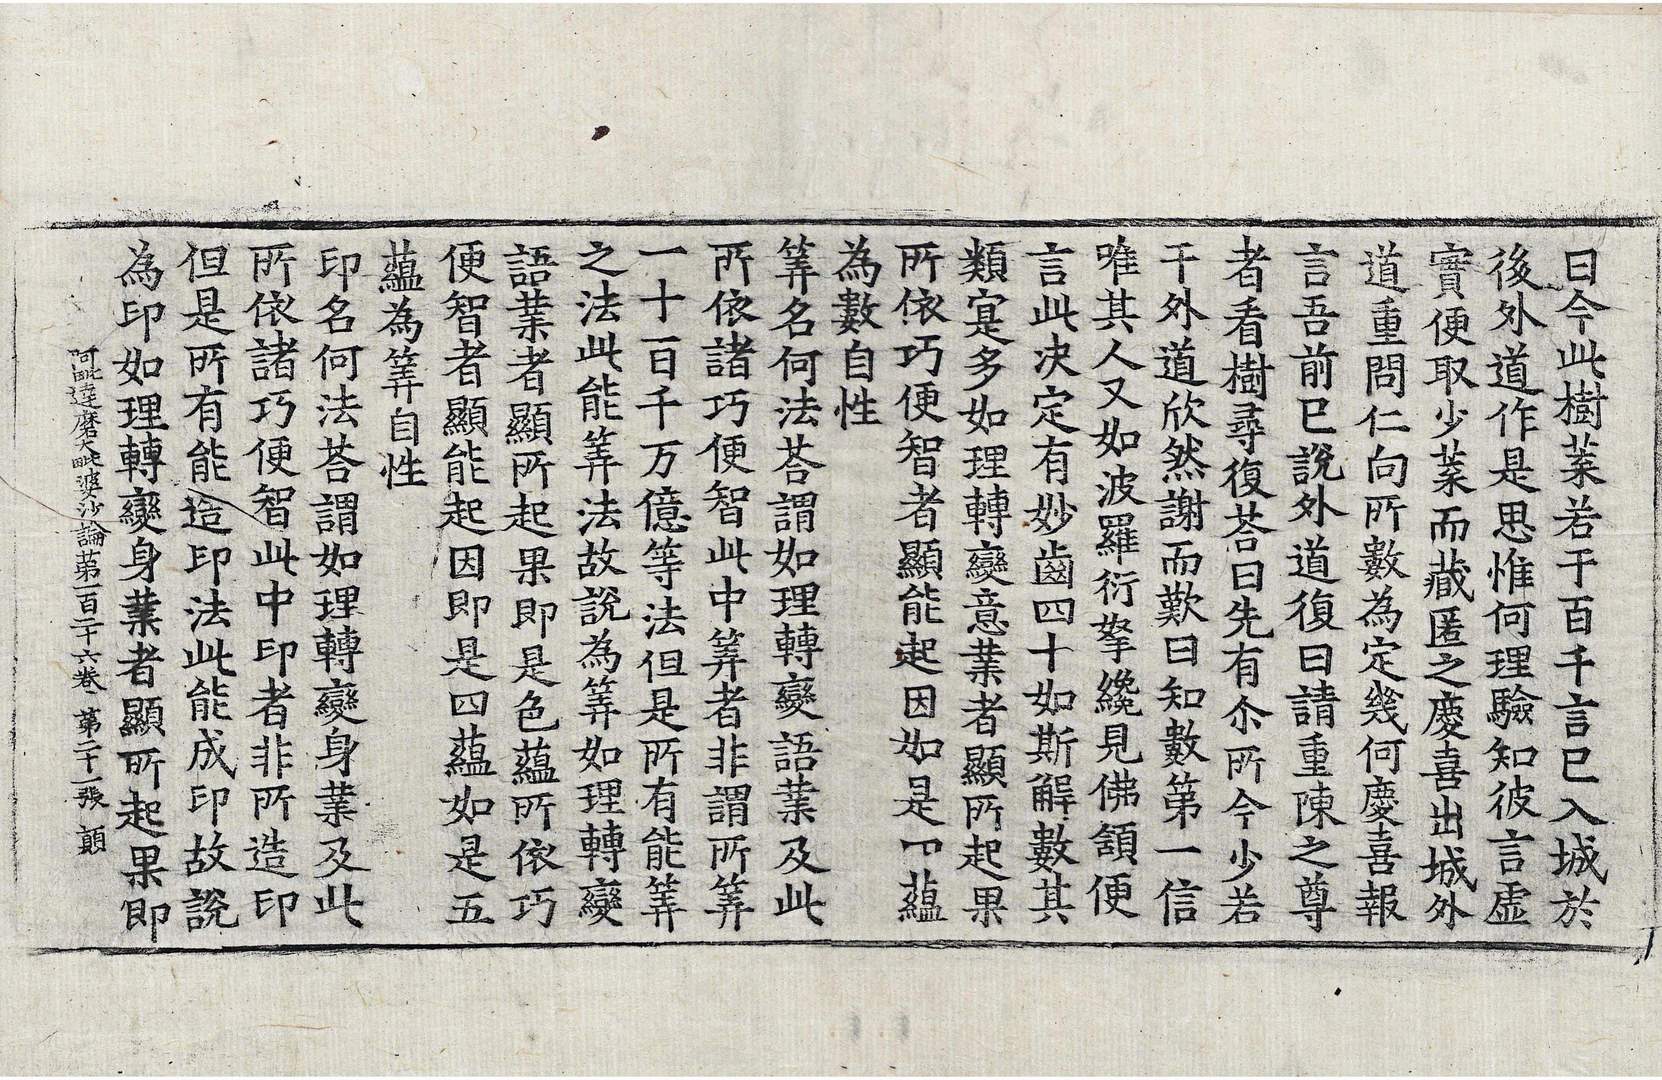 曰今此樹葉若干百千言已入城於
後外道作是思惟何理驗知彼言虛
實便取少葉而藏匿之慶喜出城外
道重問仁向所數為定幾何慶喜報
言吾前已說外道復曰請重陳之尊
者看樹尋復荅曰先有尒所今少若
干外道欣然謝而歎曰知數第一信
唯其人又如波羅衍拏纔見佛頷便
言此決定有妙齒四十如斯解數其
類寔多如理轉變意業者顯所起果
所依巧便智者顯能起因如是四蘊
為數自性
筭名何法荅謂如理轉變語業及此
所依諸巧便智此中筭者非謂所筭
一十百千万億等法但是所有能筭
之法此能筭法故說為筭如理轉變
語業者顯所起果即是色蘊所依巧
便智者顯能起因即是四蘊如是五
蘊為筭自性
印名何法荅謂如理轉變身業及此
所依諸巧便智此中印者非所造印
但是所有能造印法此能成印故說
為印如理轉變身業者顯所起果即
阿毗達磨大毗婆沙論苐一百二十六卷 第二十一張 顛